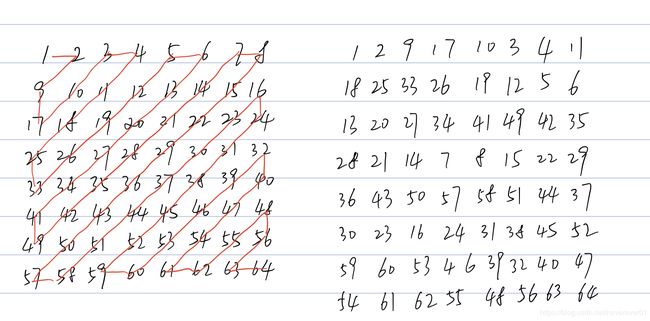 1 2 3 4 5 6 7 8
9 10 11 12 13 14 15 16
17 18 19 20 21 22 23 24
25 26 27 28 29 30 31 32
33 34 35 36 37 38 39 40
41 42 43 44 45 46 47 48
49 50 51 52 53 54 55 56
57 58 59 60 61 62 63 64
1 2 9 17 10 3 4 11
18 25 33 26 19 12 5 6
13 20 27 34 41 49 42 35
28 21 14 7 8 15 22 29
36 43 50 57 58 51 44 37
30 23 16 24 31 38 45 52
59 60 53 46 39 32 40 47
54 61 62 55 48 56 63 64